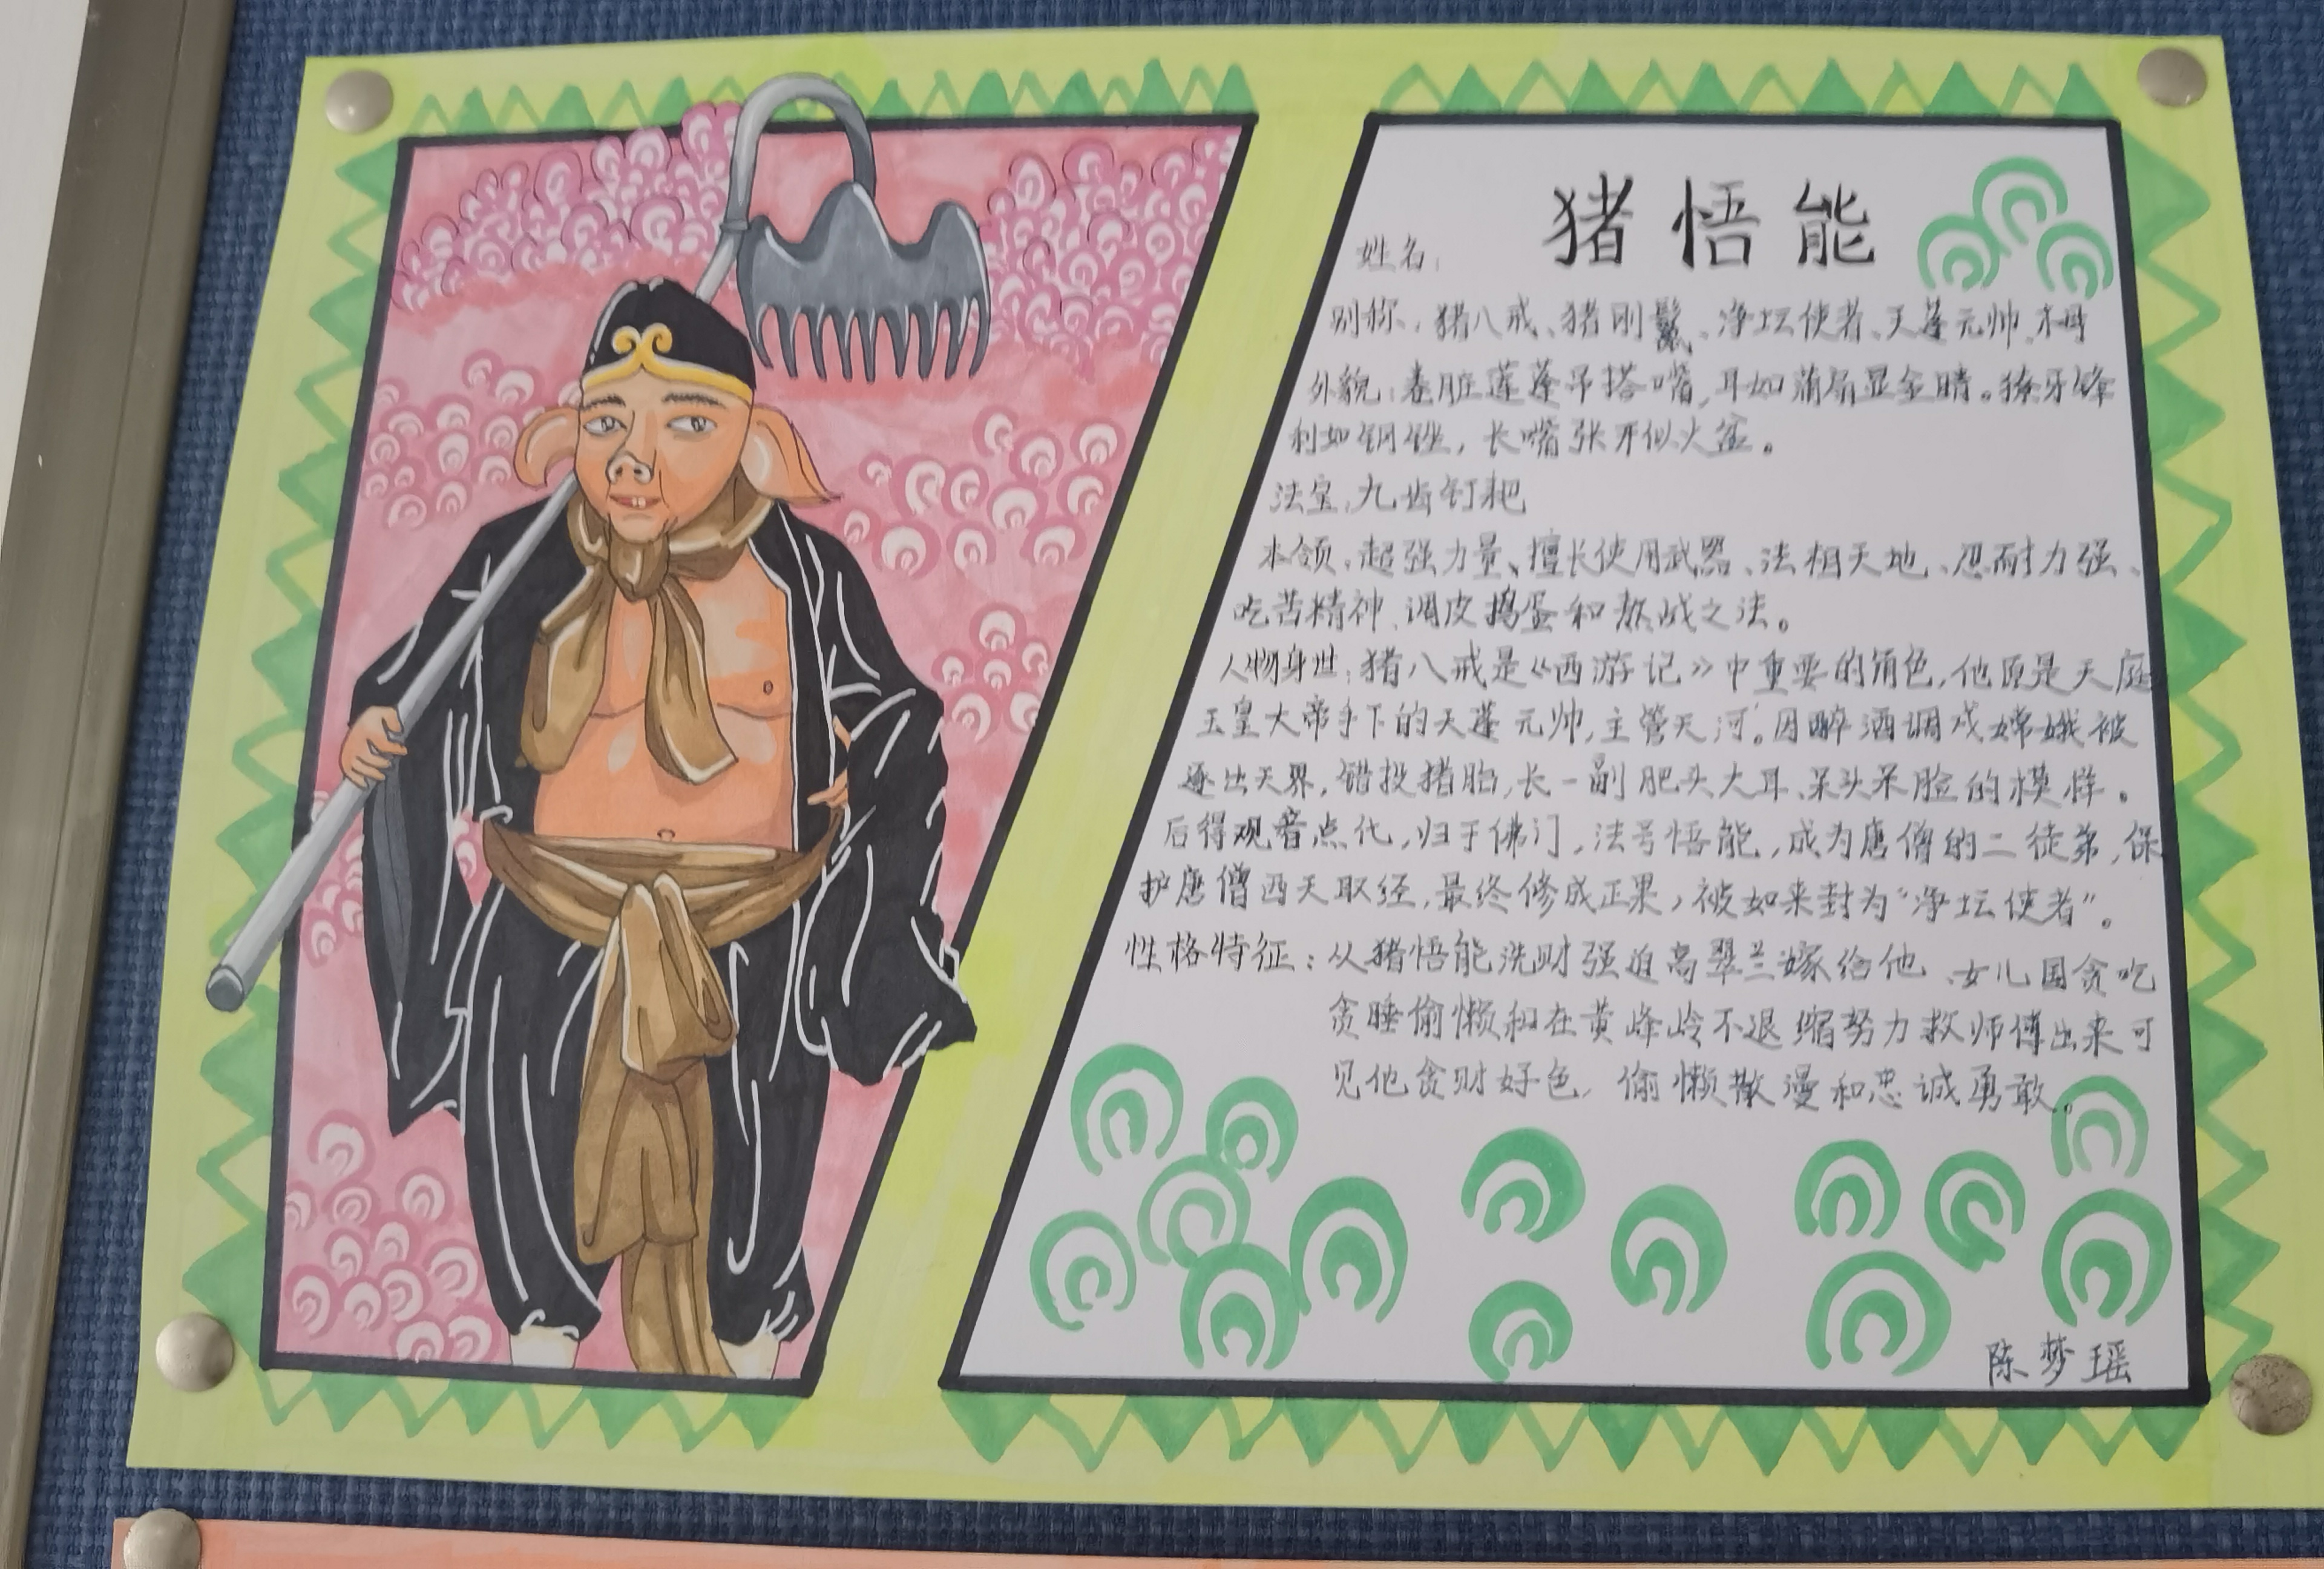 姓名: 猪悟能
别称:猪八戒、猪刚鬣、净坛使者、天蓬元帅、木母
外貌:卷脏莲蓬吊搭嘴,耳如蒲扇显金睛。獠牙锋
利如钢锉,长嘴张开似火盆。
法宝:九齿钉耙
本领:超强力量、擅长使用武器、法相天地、忍耐力强、
吃苦精神、调皮捣蛋和熬战之法。
人物身世:猪八戒是《西游记》中重要的角色,他原是天庭
玉皇大帝手下的天蓬元帅,主管天河。因醉酒调戏嫦娥被
逐出天界,错投猪胎,长一副肥头大耳、呆头呆脸的模样。
后得观音点化,归于佛门,法号悟能,成为唐僧的二徒弟,保
护唐僧西天取经,最终修成正果,被如来封为“净坛使者”。
性格特征:从猪悟能洗财强迫高翠兰嫁给他、女儿国贪吃
贪睡偷懒和在黄峰岭不退缩努力救师傅出来可
见他贪财好色,偷懒散漫和忠诚勇敢。
陈梦瑶